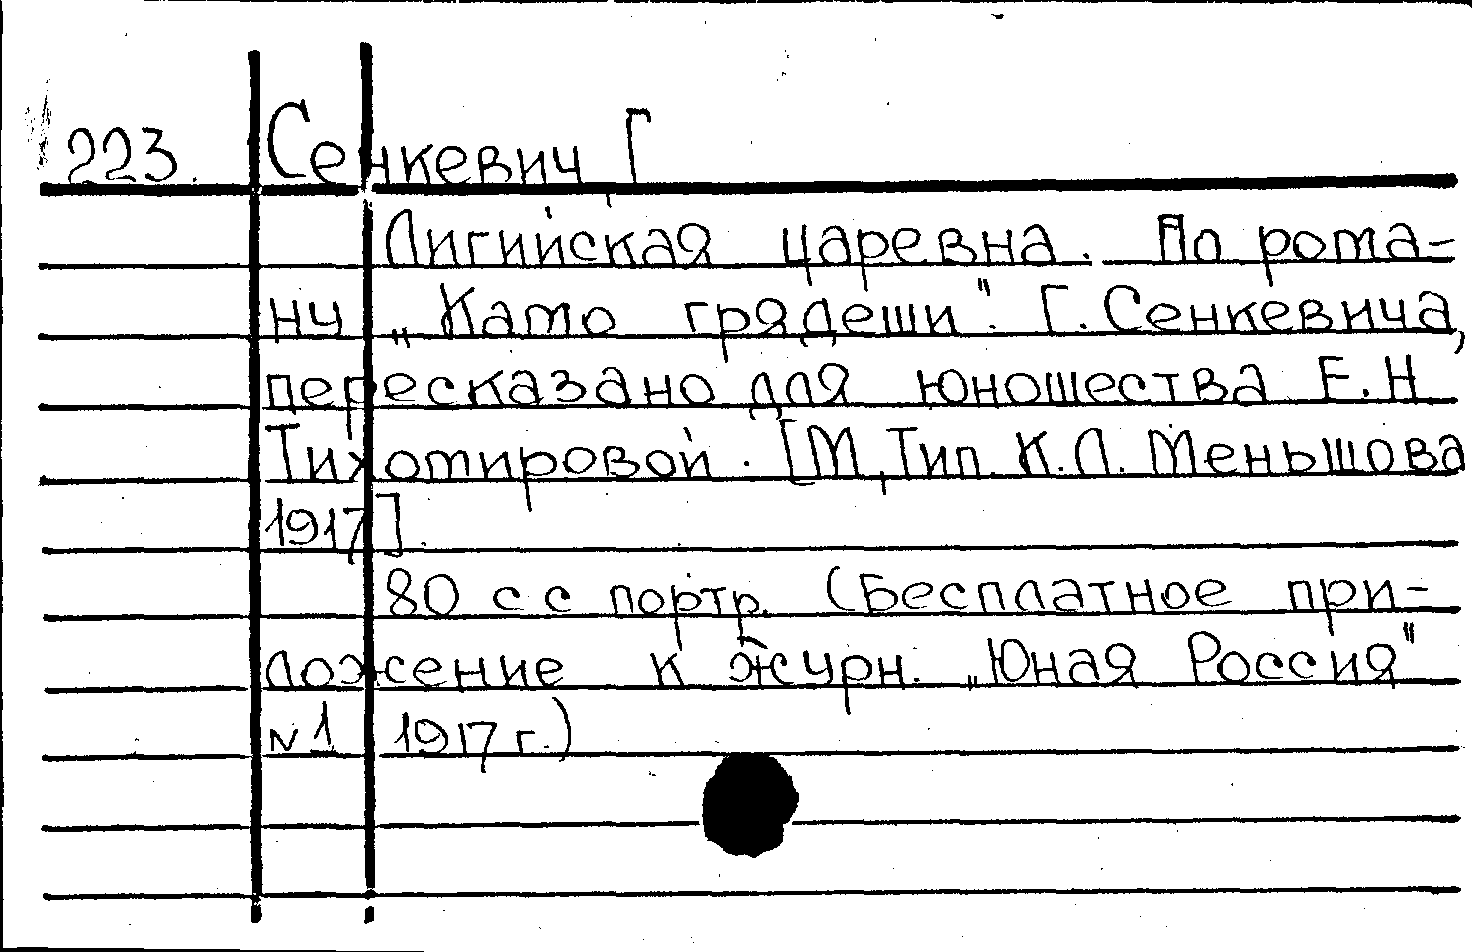 223. Сенкевич Г
Лигийская царевна. По рома-
ну „Камо грядеши". Г. Сенкевича,
пересказано для юношества Е.Н
Тихомировой. [М, Тип. К.Л. Меньшова
1917].
80 с с портр. (Бесплатное при-
ложение к журн. „Юная Россия"
N 1 1917 г.)